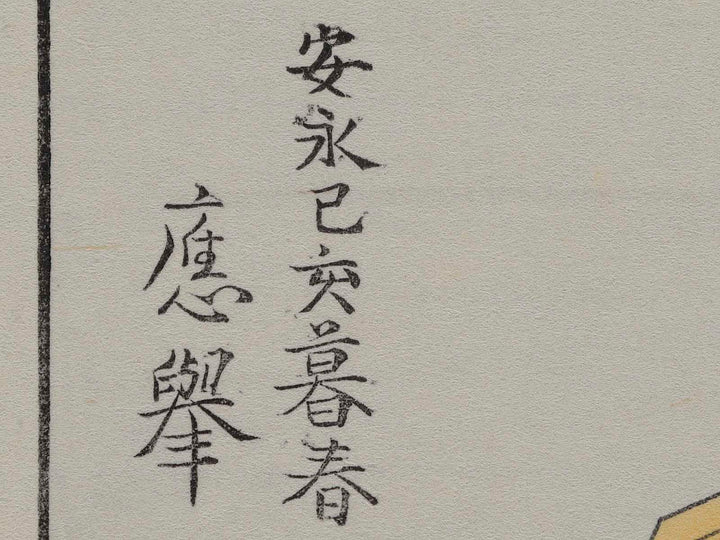 安永己亥暮春
應舉